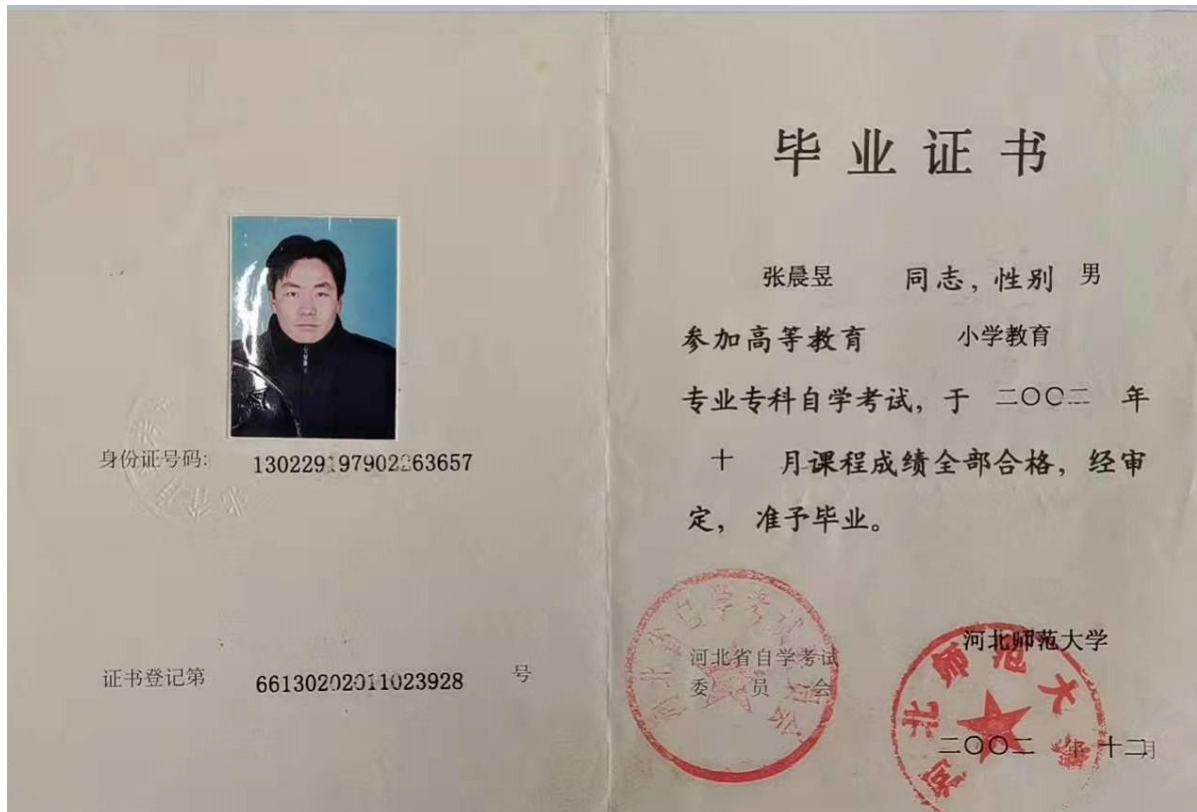 身份证号码: 130229197902263657
证书登记第 66130202011023928 号
毕业证书
张晨昱 同志，性别 男
参加高等教育 小学教育
专业专科自学考试，于 二〇〇二 年
十 月课程成绩全部合格，经审
定， 准予毕业。
河北省自学考试
委员会
河北师范大学
二〇〇二 年 十二月
河北省自学考试委员会
河北师范大学